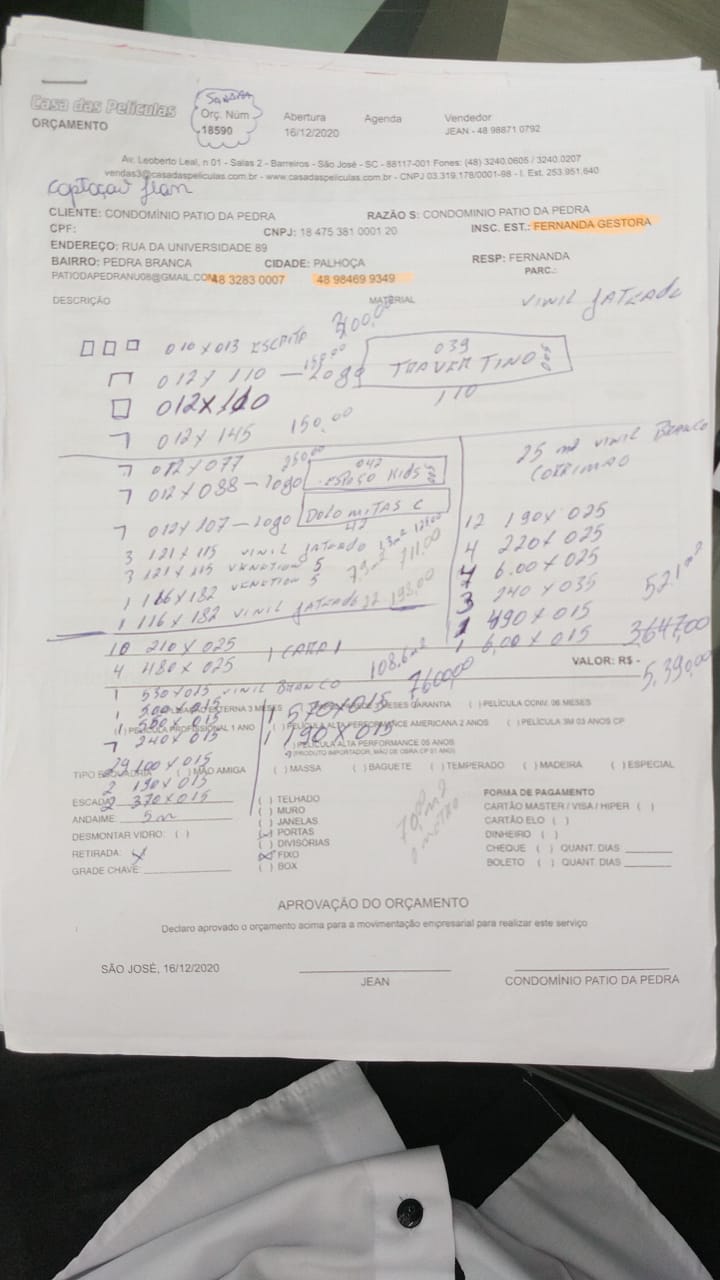 Casa das Películas
ORÇAMENTO
SANDRA
Orç. Núm
18590
Abertura
16/12/2020
Agenda
Vendedor
JEAN - 48 98871 0792
Av. Leoberto Leal, n 01 - Salas 2 - Barreiros - São José - SC - 88117-001 Fones: (48) 3240.0605 / 3240.0207
vendas3@casadaspeliculas.com.br - www.casadaspeliculas.com.br - CNPJ 03.319.178/0001-98 - I. Est. 253.951.640
captação Jean
CLIENTE: CONDOMÍNIO PATIO DA PEDRA RAZÃO S: CONDOMINIO PATIO DA PEDRA
CPF: CNPJ: 18 475 381 0001 20 INSC. EST.: FERNANDA GESTORA
ENDEREÇO: RUA DA UNIVERSIDADE 89
BAIRRO: PEDRA BRANCA CIDADE: PALHOÇA RESP: FERNANDA
PARC.:
PATIODAPEDRANU08@GMAIL.COM 48 3283 0007 48 98469 9349
DESCRIÇÃO MATERIAL VINIL JATEADO
010 X 013 ESCRITA 300,00
012 X 110 - Logo 150,00 039 TRAVERTINO 110
012 X 110
7 012 X 145 150,00
7 012 X 077 250,00
7 012 X 088 - logo 042 ESPAÇO KIDS
7 012 X 107 - LOGO DOLOMITAS C 42
3 121 X 115 VINIL JATEADO
3 121 X 115 VENETION 5 7,9 m² 711,00
1 166 X 182 VENETION 5
1 116 X 182 VINIL JATEADO 22 198,00
25 m² VINIL BRANCO
CORRIMAO
12 190 X 025
4 220 X 025
7 6.00 X 025
3 240 X 035
1 490 X 015
1 6,00 X 015
521 m²
3.647,00
10 210 X 025
4 480 X 025
108.6 m²
7600,00
VALOR: R$ - 5.390,00
1 530 X 015 VINIL BRANCO
1 500 X 015
11 580 X 015
7 240 X 015
29 100 X 015
2 190 X 015
2 370 X 015
1 570 X 015
1 190 X 015
EXTERNA 3 MESES MESES GARANTIA ( ) PELÍCULA CONV. 06 MESES
( ) PELÍCULA PROFISSIONAL 1 ANO PELÍCULA ALTA PERFORMANCE AMERICANA 2 ANOS ( ) PELÍCULA 3M 03 ANOS CP
PELÍCULA ALTA PERFORMANCE 05 ANOS
(PRODUTO IMPORTADOR, MÃO DE OBRA CP 01 ANO)
TIPO ESQUADRIA ( ) MÃO AMIGA ( ) MASSA ( ) BAGUETE ( ) TEMPERADO ( ) MADEIRA ( ) ESPECIAL
ESCADA
ANDAIME 5m
DESMONTAR VIDRO: ( )
RETIRADA: X
GRADE CHAVE:
( ) TELHADO
( ) MURO
( ) JANELAS
(X) PORTAS
( ) DIVISÓRIAS
(X) FIXO
( ) BOX
70,00 m²
O METRO
FORMA DE PAGAMENTO
CARTÃO MASTER / VISA / HIPER ( )
CARTÃO ELO ( )
DINHEIRO ( )
CHEQUE ( ) QUANT. DIAS
BOLETO ( ) QUANT. DIAS
APROVAÇÃO DO ORÇAMENTO
Declaro aprovado o orçamento acima para a movimentação empresarial para realizar este serviço
SÃO JOSÉ, 16/12/2020
JEAN
CONDOMÍNIO PATIO DA PEDRA